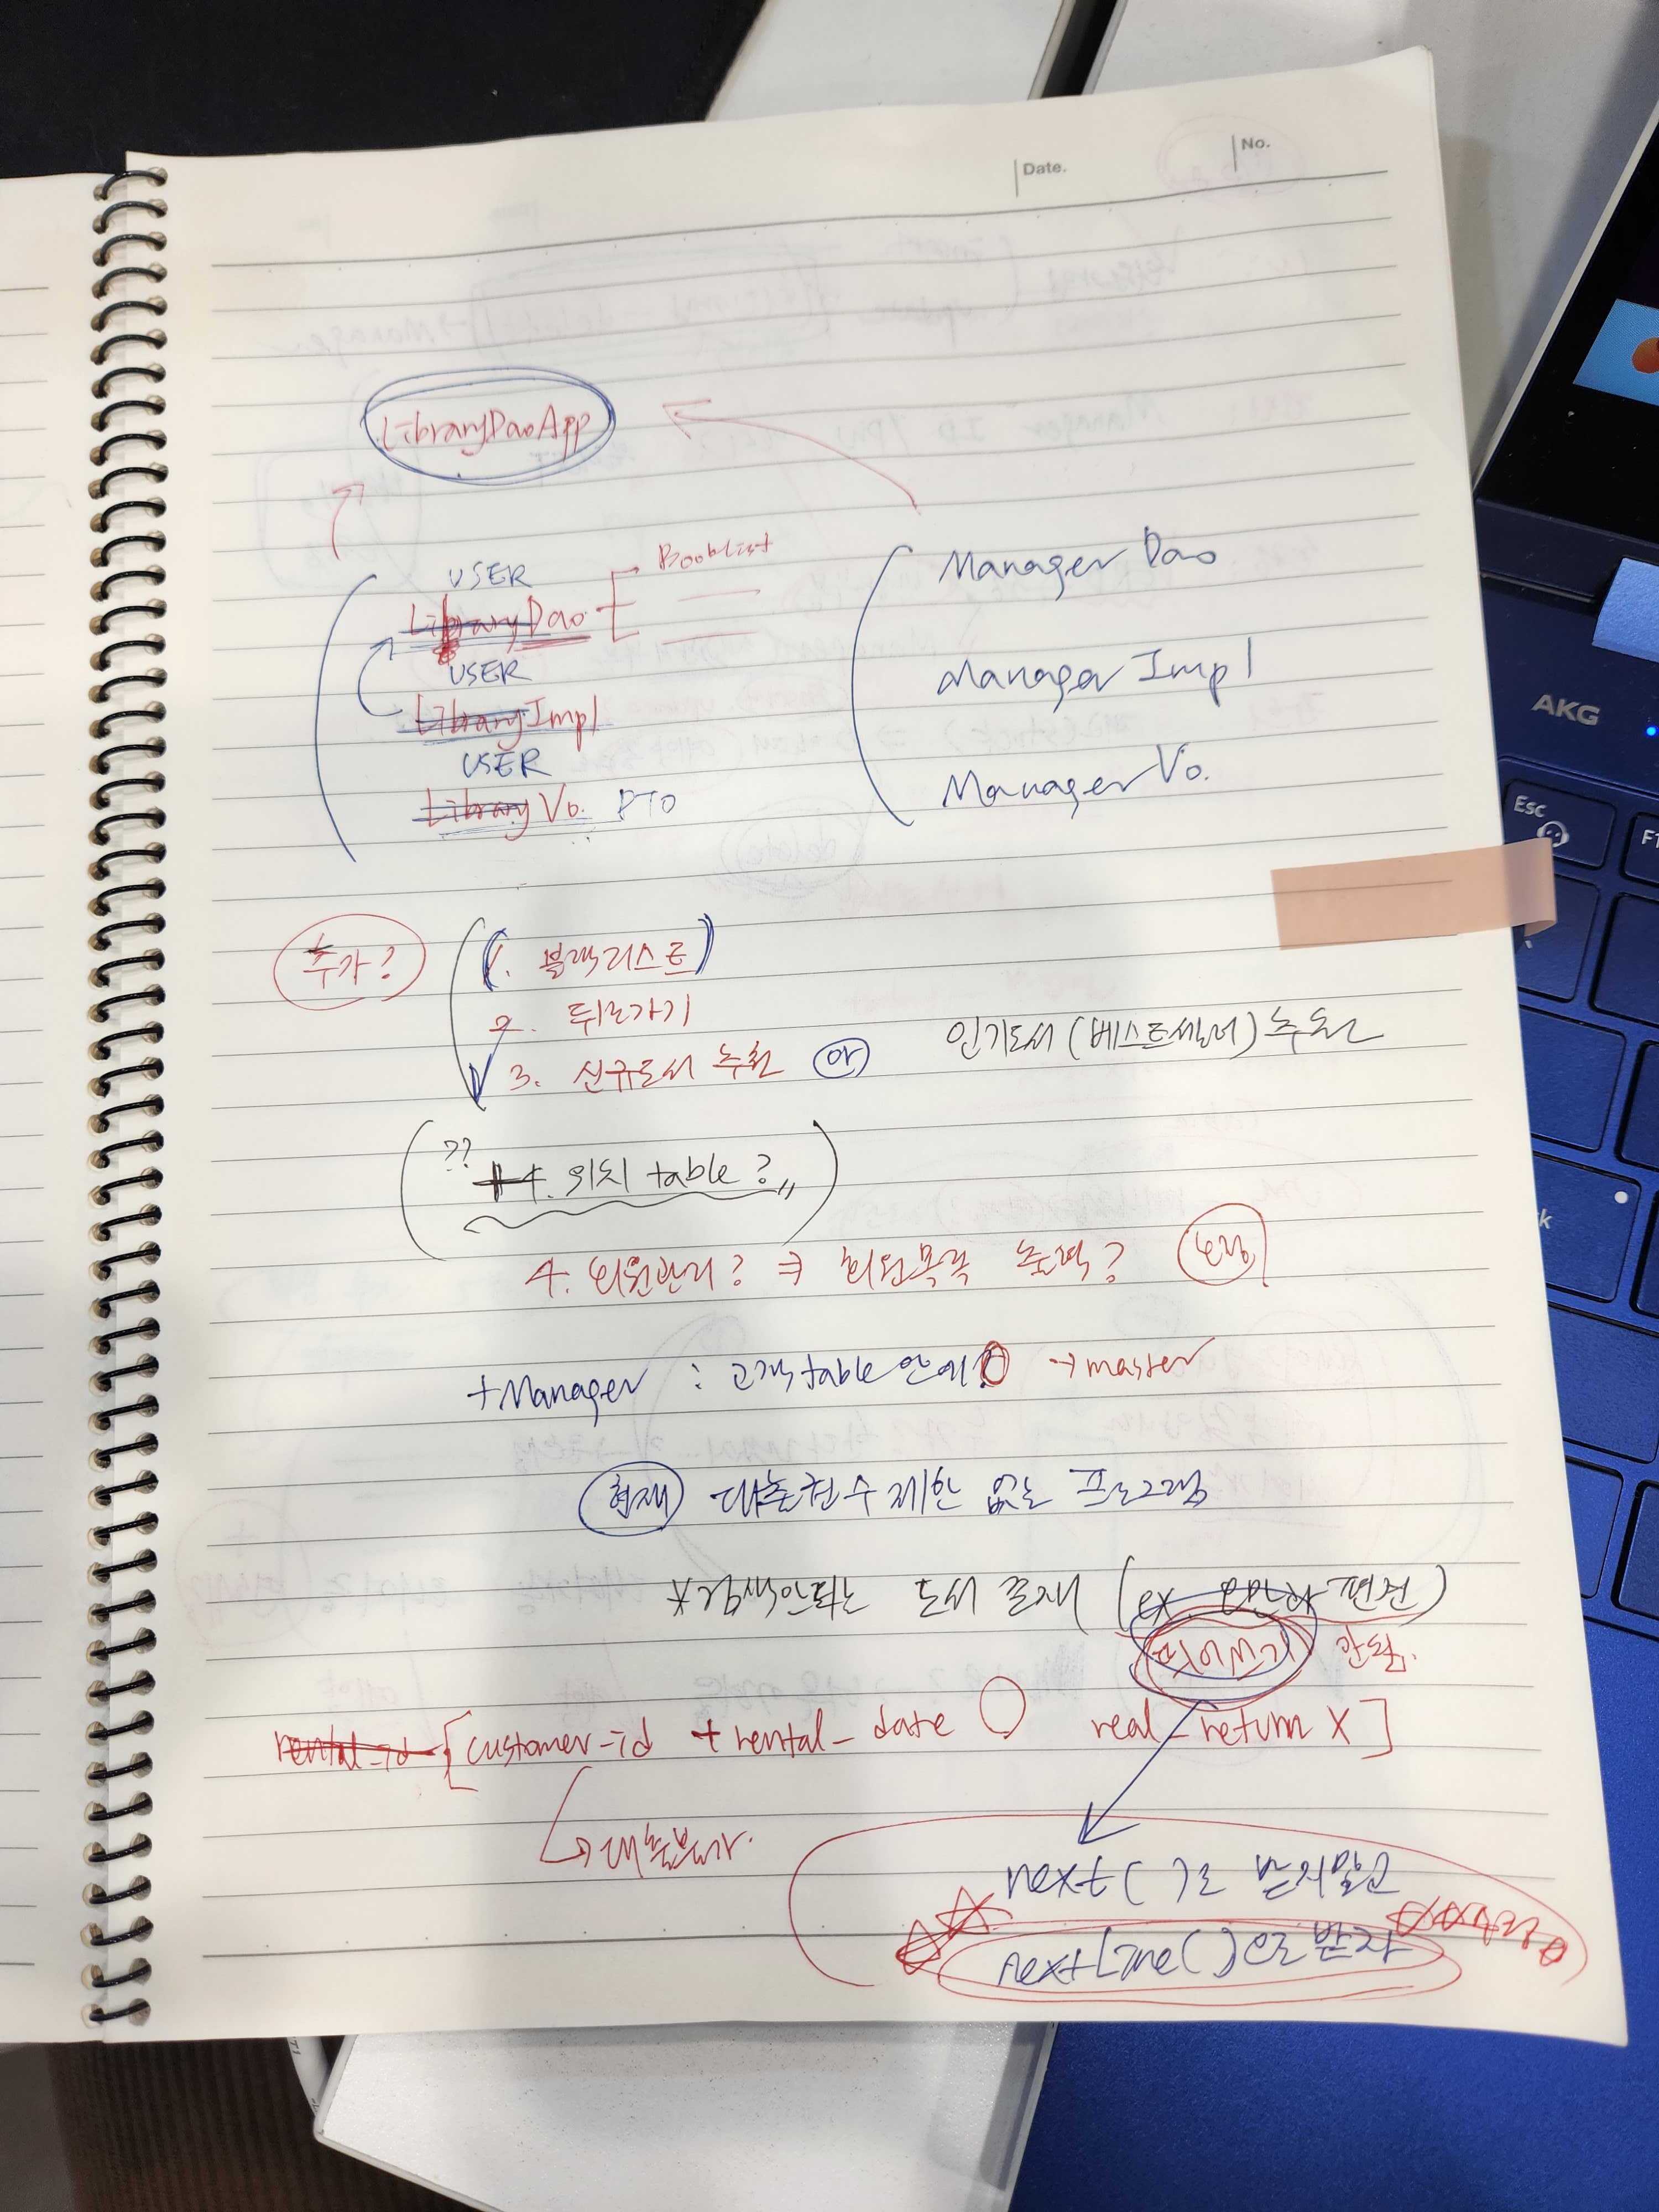 Date.
No.
LibraryDaoApp
USER
LibraryDao
BookList
USER
LibraryImpl
USER
LibraryVo. DTO
Manager Dao
Manager Impl
Manager Vo.
추가?
1. 블랙리스트
2. 뒤로가기
3. 신규도서 추천
인기도서 (베스트셀러) 추천
?? 4. 위치 table?
4. 회원관리? 회원목록 출력?
+Manager : 고객table 안에? → master
현재 대출권수 제한 없는 프로그램
*검색안되는 도서 존재 (ex. 오만과 편견)
띄어쓰기
rental-id [customer-id + rental_date real_return X]
→ 대출불가.
next( )로 받지말고
nextLine( )으로 받자
AKG
Esc
F1
k